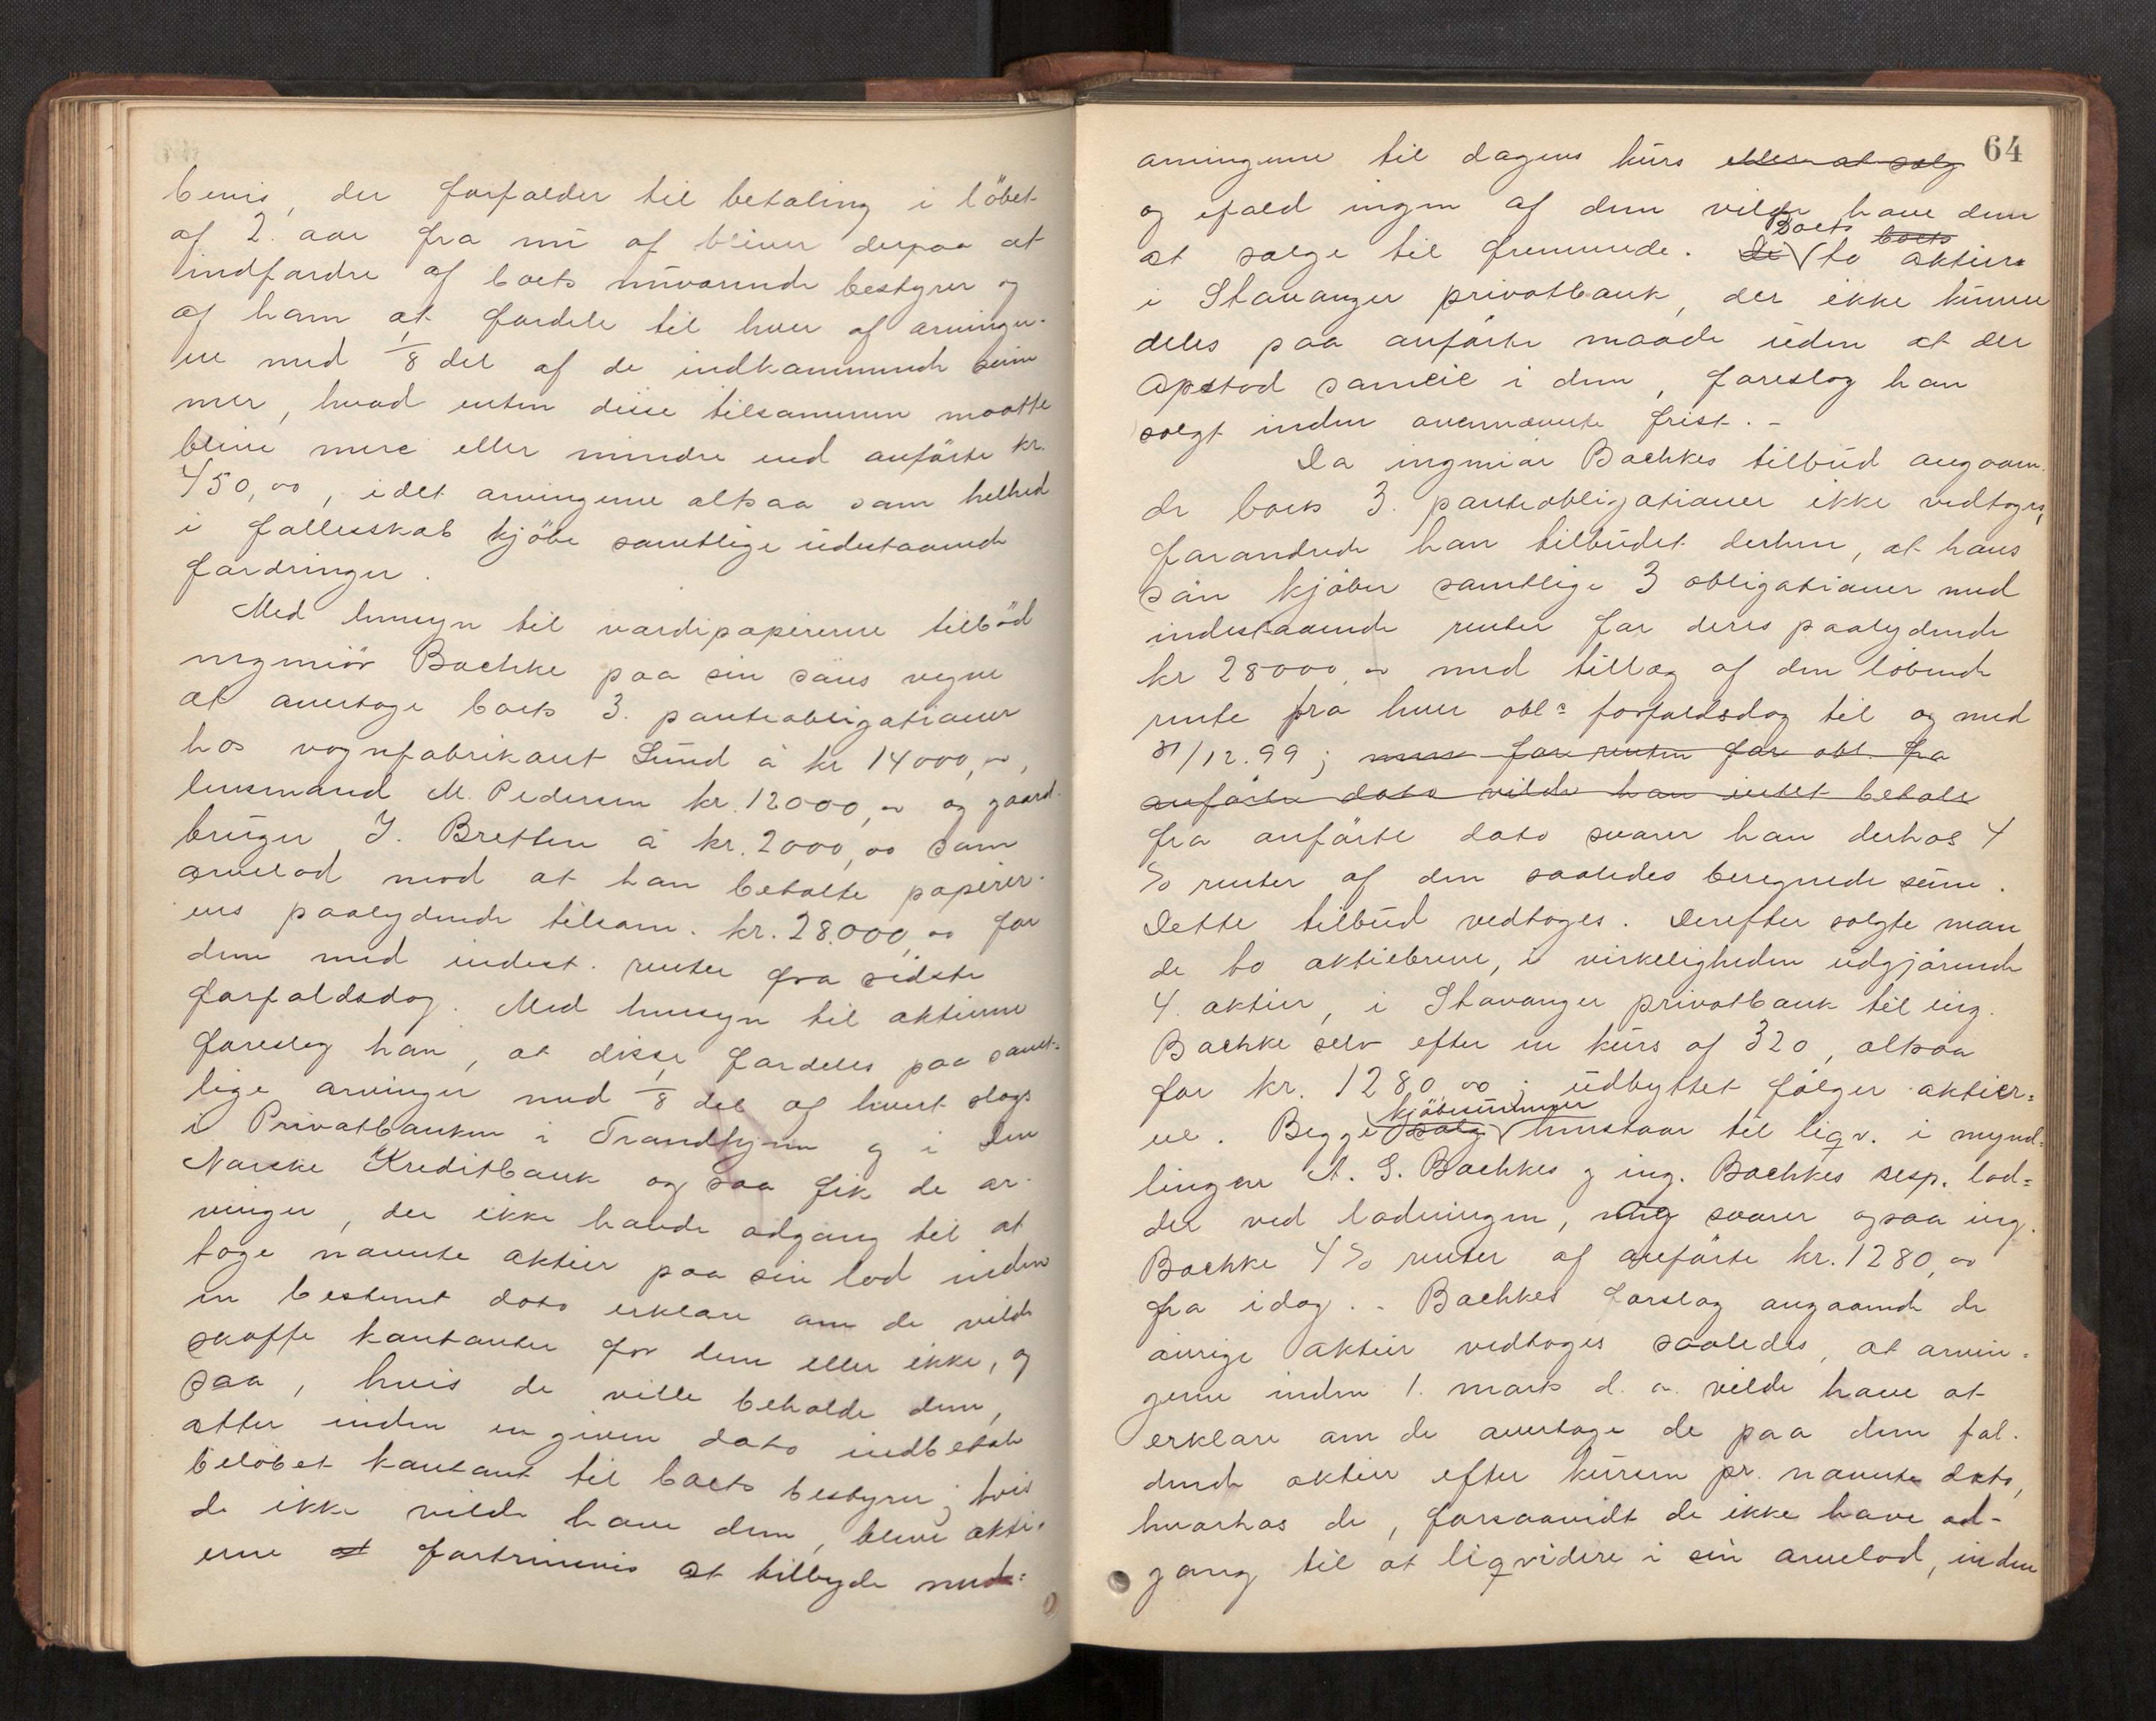 bevis, der forfalder til betaling i löbet
af 2. aar fra nu af bliver derpaa at
indfordre af boets nuværende bestyrer og
af ham at fordele til hver af arvinger-
ne med 1/8 del af de indkommende sum
mer, hvad enten disse tilsammen maatte
blive mere eller mindre end anförte kr.
450,00, idet arvingerne altsaa som helhed
i fællesskab kjöbe samtlige udestaaende
fordringer.
Med hensyn til værdipapirerne tilböd
ingeniör Bachke paa sin söns vegne
at overtage boets 3. panteobligationer
hos vognfabrikant Lund à kr 14000,00,
lensmand M. Pedersen kr. 12000,00 og gaard-
bruger J. Bretten à kr. 2000,00 som
arvelod mod at han betalte papirer-
nes paalydende tilsam. kr. 28.000,00 for
dem med indest. renter fra sidste
forfaldsdag. Med hensyn til aktierne
foreslog han, at disse fordeles paa samt-
lige arvinger med 1/8 del af hvert slags
i Privatbanken i Trondhjem og i Den
Norske Kreditbank og saa fik de ar-
vinger, der ikke havde adgang til at
tage nævnte aktier paa sin lod inden
en bestemt dato erklære om de vilde
skaffe kontanter for dem eller ikke, og
saa, hvis de ville beholde dem,
atter inden en given dato indbetale
belöbet kontant til boets bestyrer; hvis
de ikke vilde have dem, bleve akti-
erne at fortrinsvis at tilbyde med-
64
arvingerne til dagens kurs eller at sælg
og ifald ingen af dem vilde have dem
at sælge til fremmede. De Boets to boets aktier
i Stavanger privatbank, der ikke kunne
deles paa anförte maade uden at der
opstod sameie i dem, foreslog han
solgt inden ovennævnte frist. -
Da ingeniör Bachkes tilbud angaaen-
de boets 3. panteobligationer ikke vedtoges,
forandrede han tilbudet derhen, at hans
sön kjöber samtlige 3 obligationer med
indestaaende renter for deres paalydende
kr 28000,00 med tillæg af den löbende
rente fra hver obl.s forfaldsdag til og med
31/12.99; men for renten for obl. fra
anförte dato vilde han intet betale
fra anförte dato svarer han derhos 4
% renter af den saaledes beregnede sum.
Dette tilbud vedtoges. Derefter solgte man
de to aktiebreve, i virkeligheden udgjörende
4. aktier, i Stavanger privatbank til ing.
Bachke selv efter en kurs af 320, altsaa
for kr. 1280,00; udbyttet fölger aktier-
ne. Begge salg kjöbesummer henstaar til liqv. i mynd-
lingen A. S. Bachkes og ing. Bachkes resp. lod-
der ved lodningen, og svarer ogsaa ing.
Bachke 4% renter af anförte kr. 1280,00
fra idag. - Bachkes forslag angaaende de
övrige aktier vedtoges saaledes, at arvin-
gerne inden 1. marts d. a. vilde have at
erklære om de overtage de paa dem fal-
dende aktier efter kursen pr. nævnte dato,
hvorhos de, forsaavidt de ikke have ad-
gang til at liqvidere i sin arvelod, inden